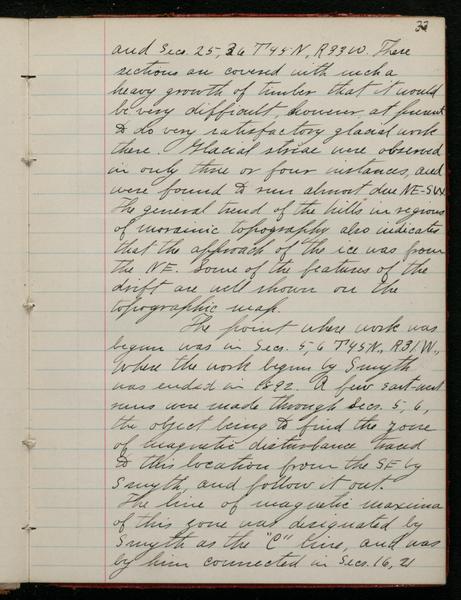 33
and Secs. 25, 36 T 45 N, R 33 W. These
sections are covered with such a
heavy growth of timber that it would
be very difficult, however, at present
to do very satisfactory glacial work
there. Glacial striae were observed
in only three or four instances, and
were found to run almost due NE-SW.
The general trend of the hills in regions
of morainic topography also indicates
that the approach of the ice was from
the NE. Some of the features of the
drift are well shown on the
topographic map.
The point where work was
begun was in Secs. 5, 6 T 45 N., R 31 W.,
where the work begun by Smyth
was ended in 1892. A few east-west
runs were made through Secs. 5, 6,
the object being to find the zone
of magnetic disturbance traced
to this location from the SE by
Smyth and follow it out.
The line of magnetic maxima
of this zone was designated by
Smyth as the "C" line, and was
by him connected in Secs. 16, 21